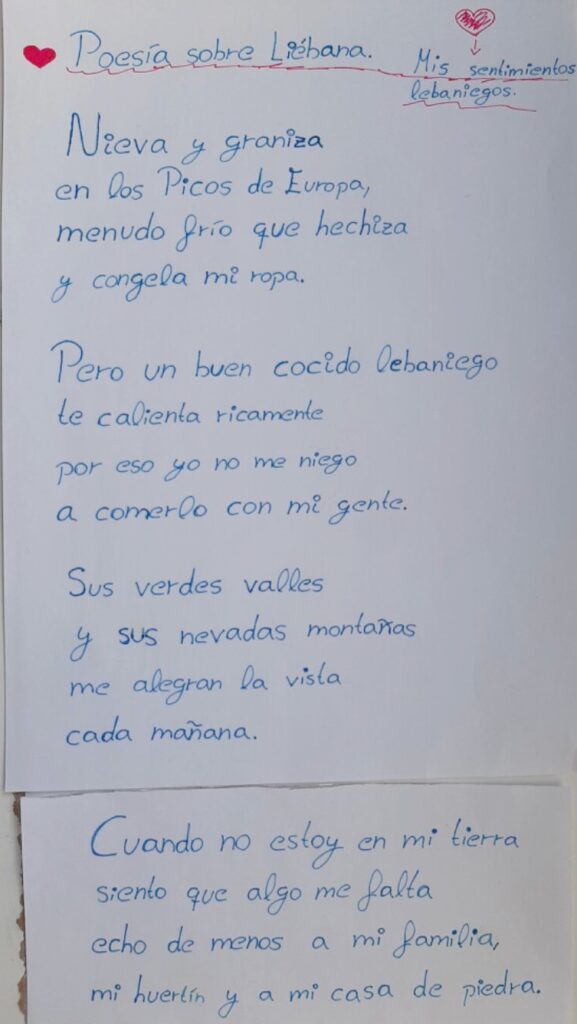 Poesía sobre Liébana.
Mis sentimientos
lebaniegos.
Nieva y graniza
en los Picos de Europa,
menudo frío que hechiza
y congela mi ropa.
Pero un buen cocido lebaniego
te calienta ricamente
por eso yo no me niego
a comerlo con mi gente.
Sus verdes valles
y sus nevadas montañas
me alegran la vista
cada mañana.
Cuando no estoy en mi tierra
siento que algo me falta
echo de menos a mi familia,
mi huertín y a mi casa de piedra.